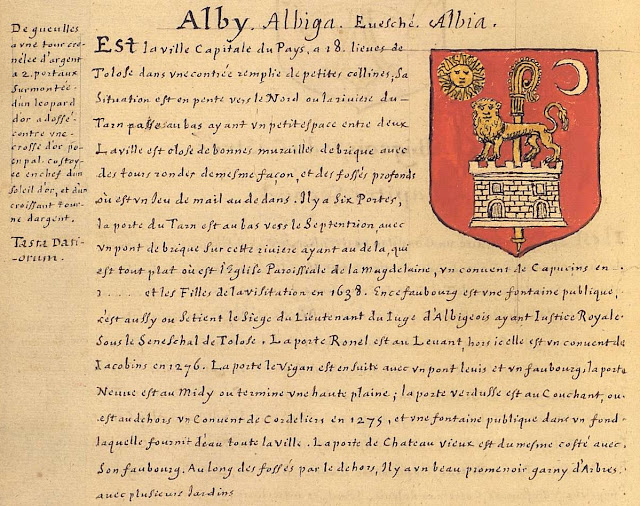 Alby. Albiga. Euesché. Albia.
De gueulles
a vne tour cre-
nelée d'argent
a 2. portaux
Surmontée
d'un leopard
d'or adossé
contre vne
crosse d'or po
en pal. costoy-
ee en chef d'un
soleil d'or, et d'un
croissant tour-
ne dargent.
Tasta Dasi-
-orum.
Est la ville Capitale du Pays, a 18. lieues de
Tolose dans vne contrée remplie de petites collines, Sa
Situation est en pente vers le Nord ou la riuiere du
Tarn passe au bas ayant vn petit espace entre deux
La ville est close de bonnes murailles de brique avec
des tours rondes de mesme façon, et des fossés profonds
où est vn Jeu de mail au dedans. Il y a Six Portes,
la porte du Tarn est au bas vers le Septentrion, avec
vn pont de brique Sur cette riviere ayant au dela, qui
est tout plat où est l'Eglise Paroissiale de la Magdelaine, vn convent de Capucins en
1..... et les Filles de la visitation en 1638. En ce faubourg est vne fontaine publique,
c'est aussy ou Se tient le Siege du Lieutenant du Iuge d'Albigeois ayant Iustice Royale
Sous le Seneschal de Tolose. La porte Ronel est au Levant, hors icelle est vn convent de
Iacobins en 1276. La porte le Vigan est en suite avec vn pont levis et vn faubourg, la porte
Neuue est au Midy ou termine vne haute plaine; la porte verdusse est au Couchant, ou
est au dehors vn Convent de Cordeliers en 1275, et vne fontaine publique dans vn fond
laquelle fournit d'eau toute la Ville. La porte de Chateau vieux est du mesme costé avec
Son faubourg. Au long des fossés par le dehors, Il y a vn beau promenoir garny d'Arbres
avec plusieurs Iardins